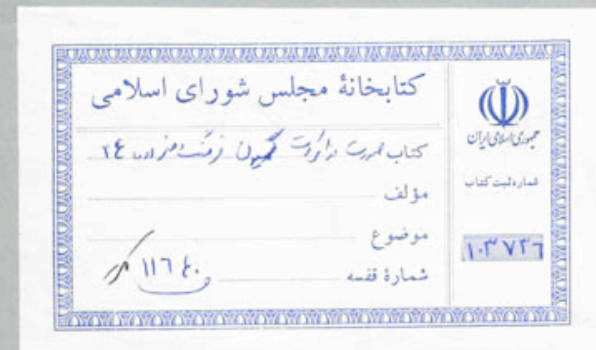 کتابخانهٔ مجلس شورای اسلامی
کتاب صورت مذاکرات کمیسیون فرهنگ و هنر ادب ۲٤
مؤلف
موضوع
شمارهٔ قفسه ۱۱٦٤۰
جمهوری اسلامی ایران
شماره ثبت کتاب
۱۰۳۷۳٦